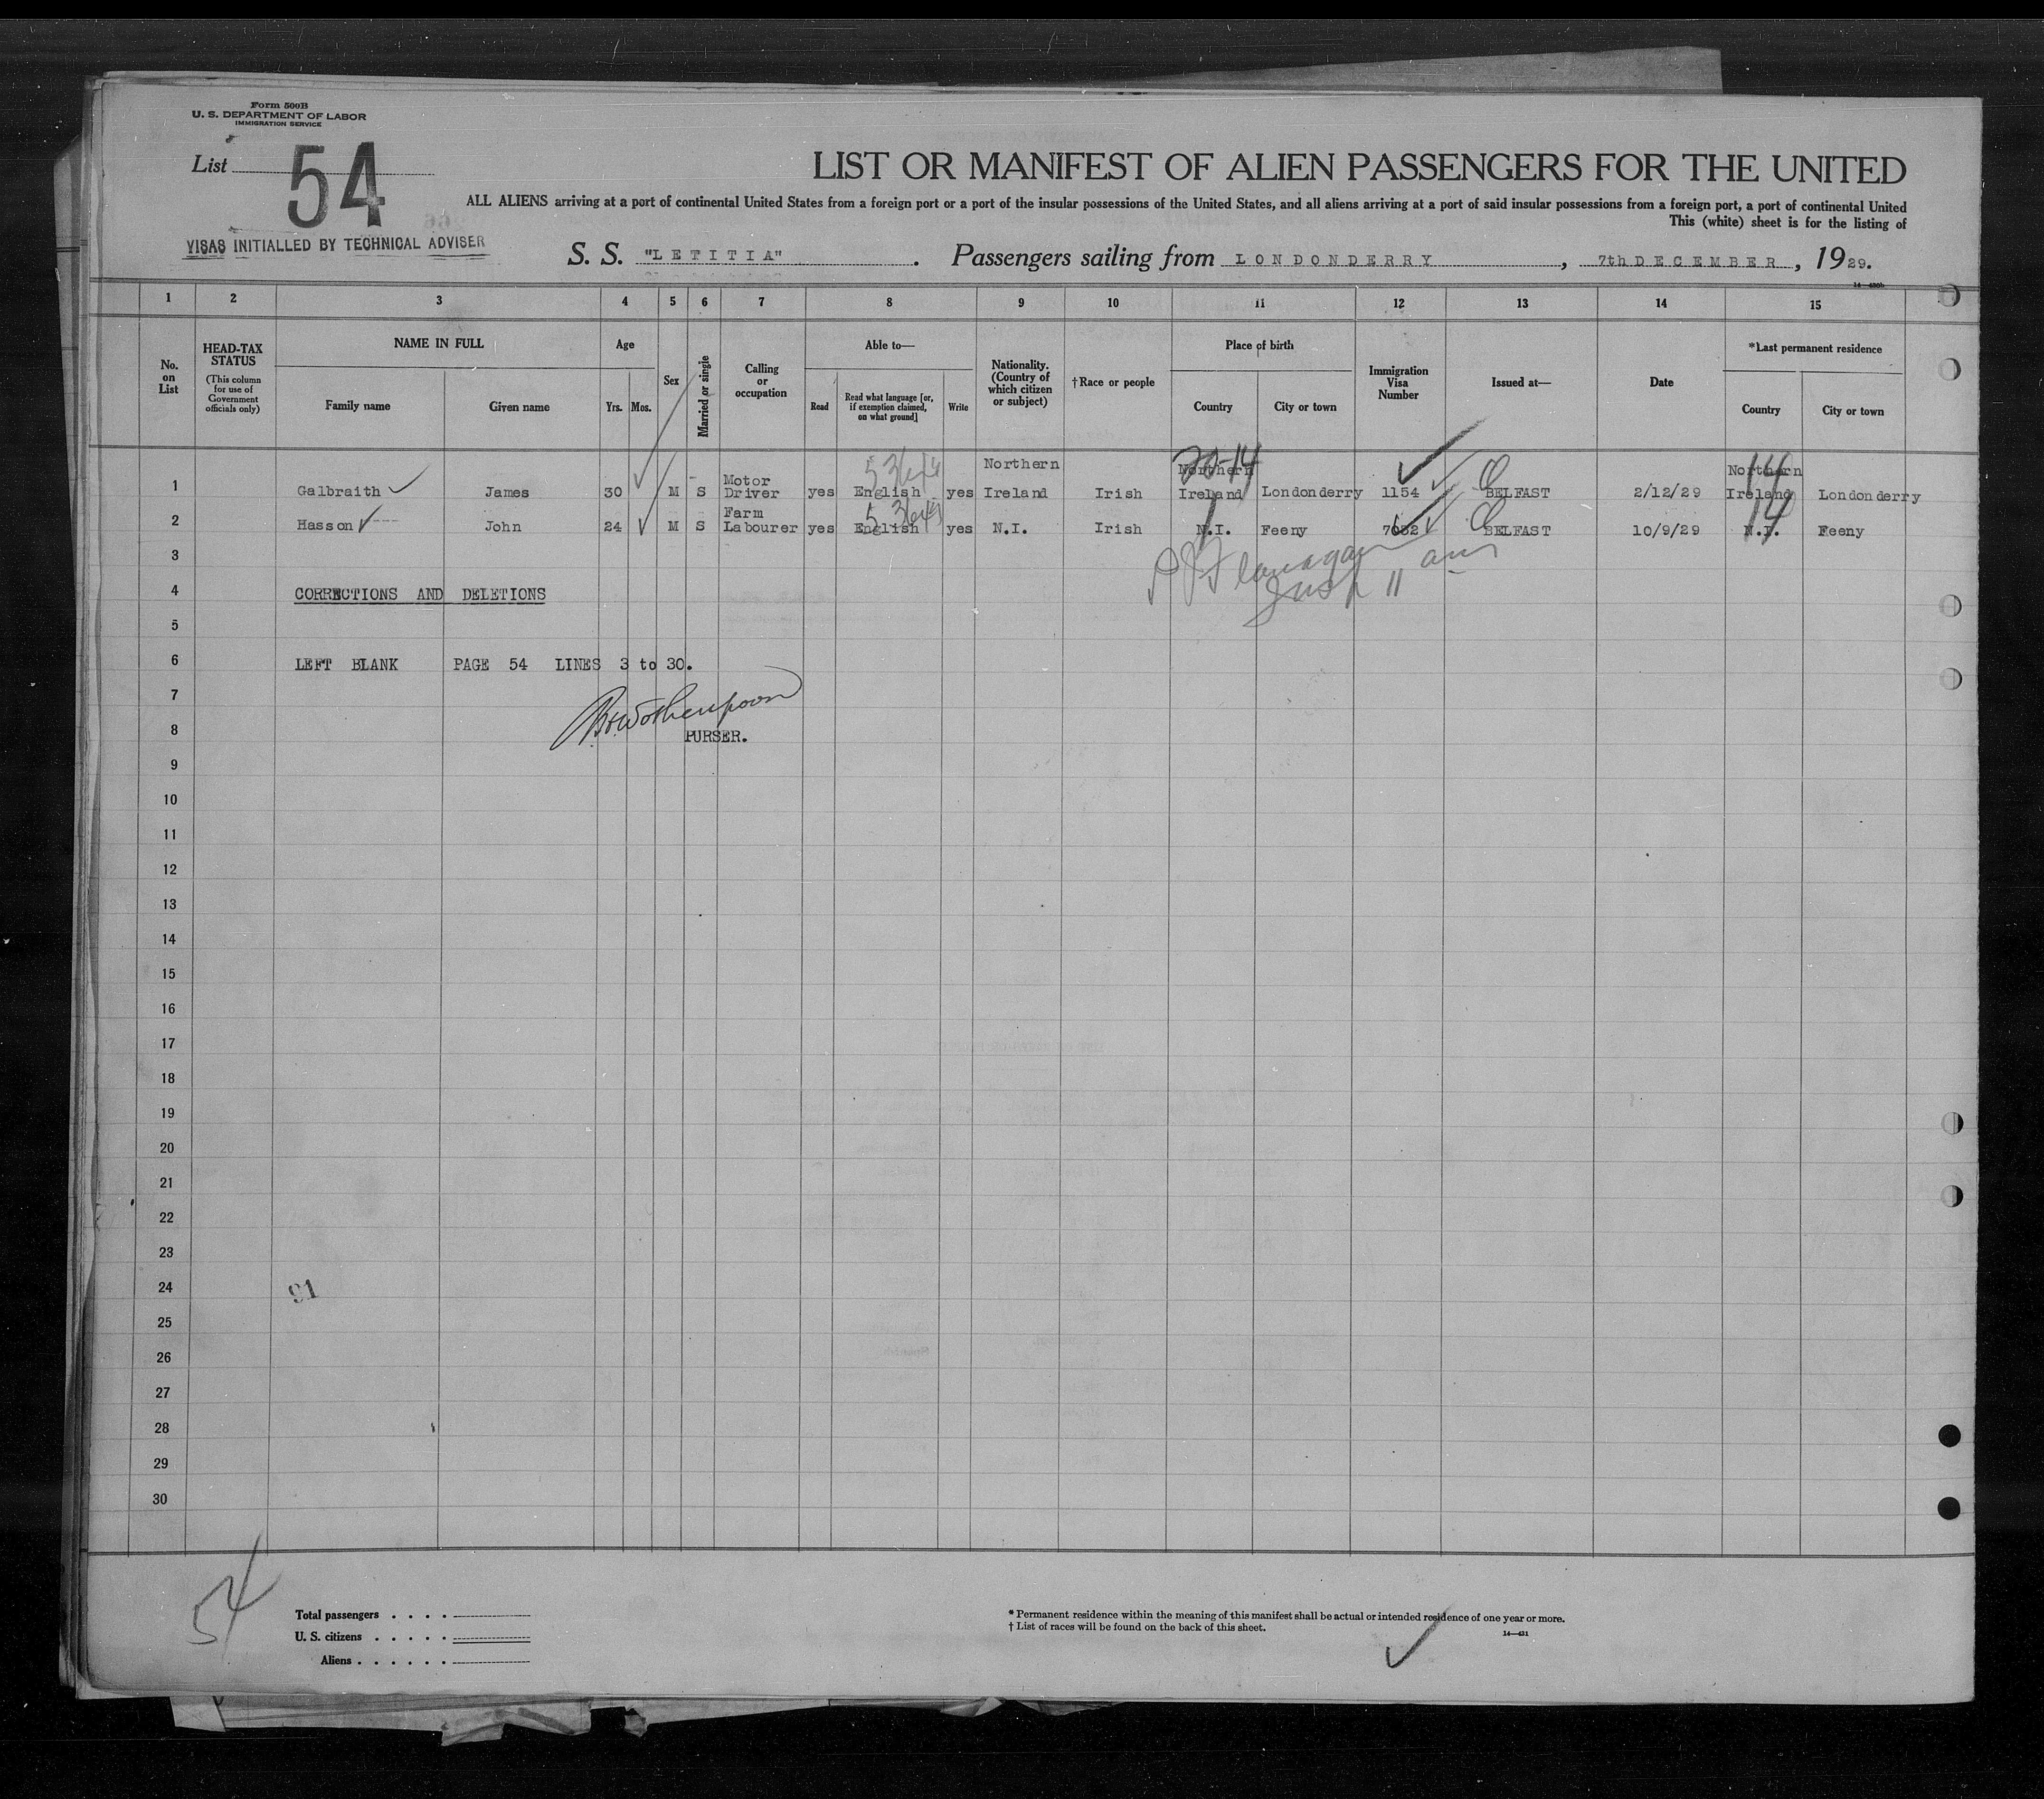 Form 500B
U. S. DEPARTMENT OF LABOR
IMMIGRATION SERVICE
List 54
LIST OR MANIFEST OF ALIEN PASSENGERS FOR THE UNITED
ALL ALIENS arriving at a port of continental United States from a foreign port or a port of the insular possessions of the United States, and all aliens arriving at a port of said insular possessions from a foreign port, a port of continental United
This (white) sheet is for the listing of
VISAS INITIALLED BY TECHNICAL ADVISER
S. S. "LETITIA". Passengers sailing from LONDONDERRY, 7th DECEMBER, 1929.
1 2 3 4 5 6 7 8 9 10 11 12 13 14 15
No. on List
HEAD-TAX STATUS
(This column for use of Government officials only)
NAME IN FULL
Family name
Given name
Age
Yrs. Mos.
Sex
Married or single
Calling or occupation
Able to—
Read
Read what language [or, if exemption claimed, on what ground]
Write
Nationality. (Country of which citizen or subject)
†Race or people
Place of birth
Country
City or town
Immigration Visa Number
Issued at—
Date
*Last permanent residence
Country
City or town
1 Galbraith James 30 M S Motor Driver yes English yes Northern Ireland Irish Northern Ireland Londonderry 1154 BELFAST 2/12/29 Northern Ireland Londonderry
20-14 14
2 Hasson John 24 M S Farm Labourer yes English yes N.I. Irish N.I. Feeny 7032 BELFAST 10/9/29 N.I. Feeny
14
3
4 CORRECTIONS AND DELETIONS
5
6 LEFT BLANK PAGE 54 LINES 3 to 30.
7
8 PURSER.
9
10
11
12
13
14
15
16
17
18
19
20
21
22
23
24
91
25
26
27
28
29
30
54
Total passengers
U. S. citizens
Aliens
* Permanent residence within the meaning of this manifest shall be actual or intended residence of one year or more.
† List of races will be found on the back of this sheet.
14—431